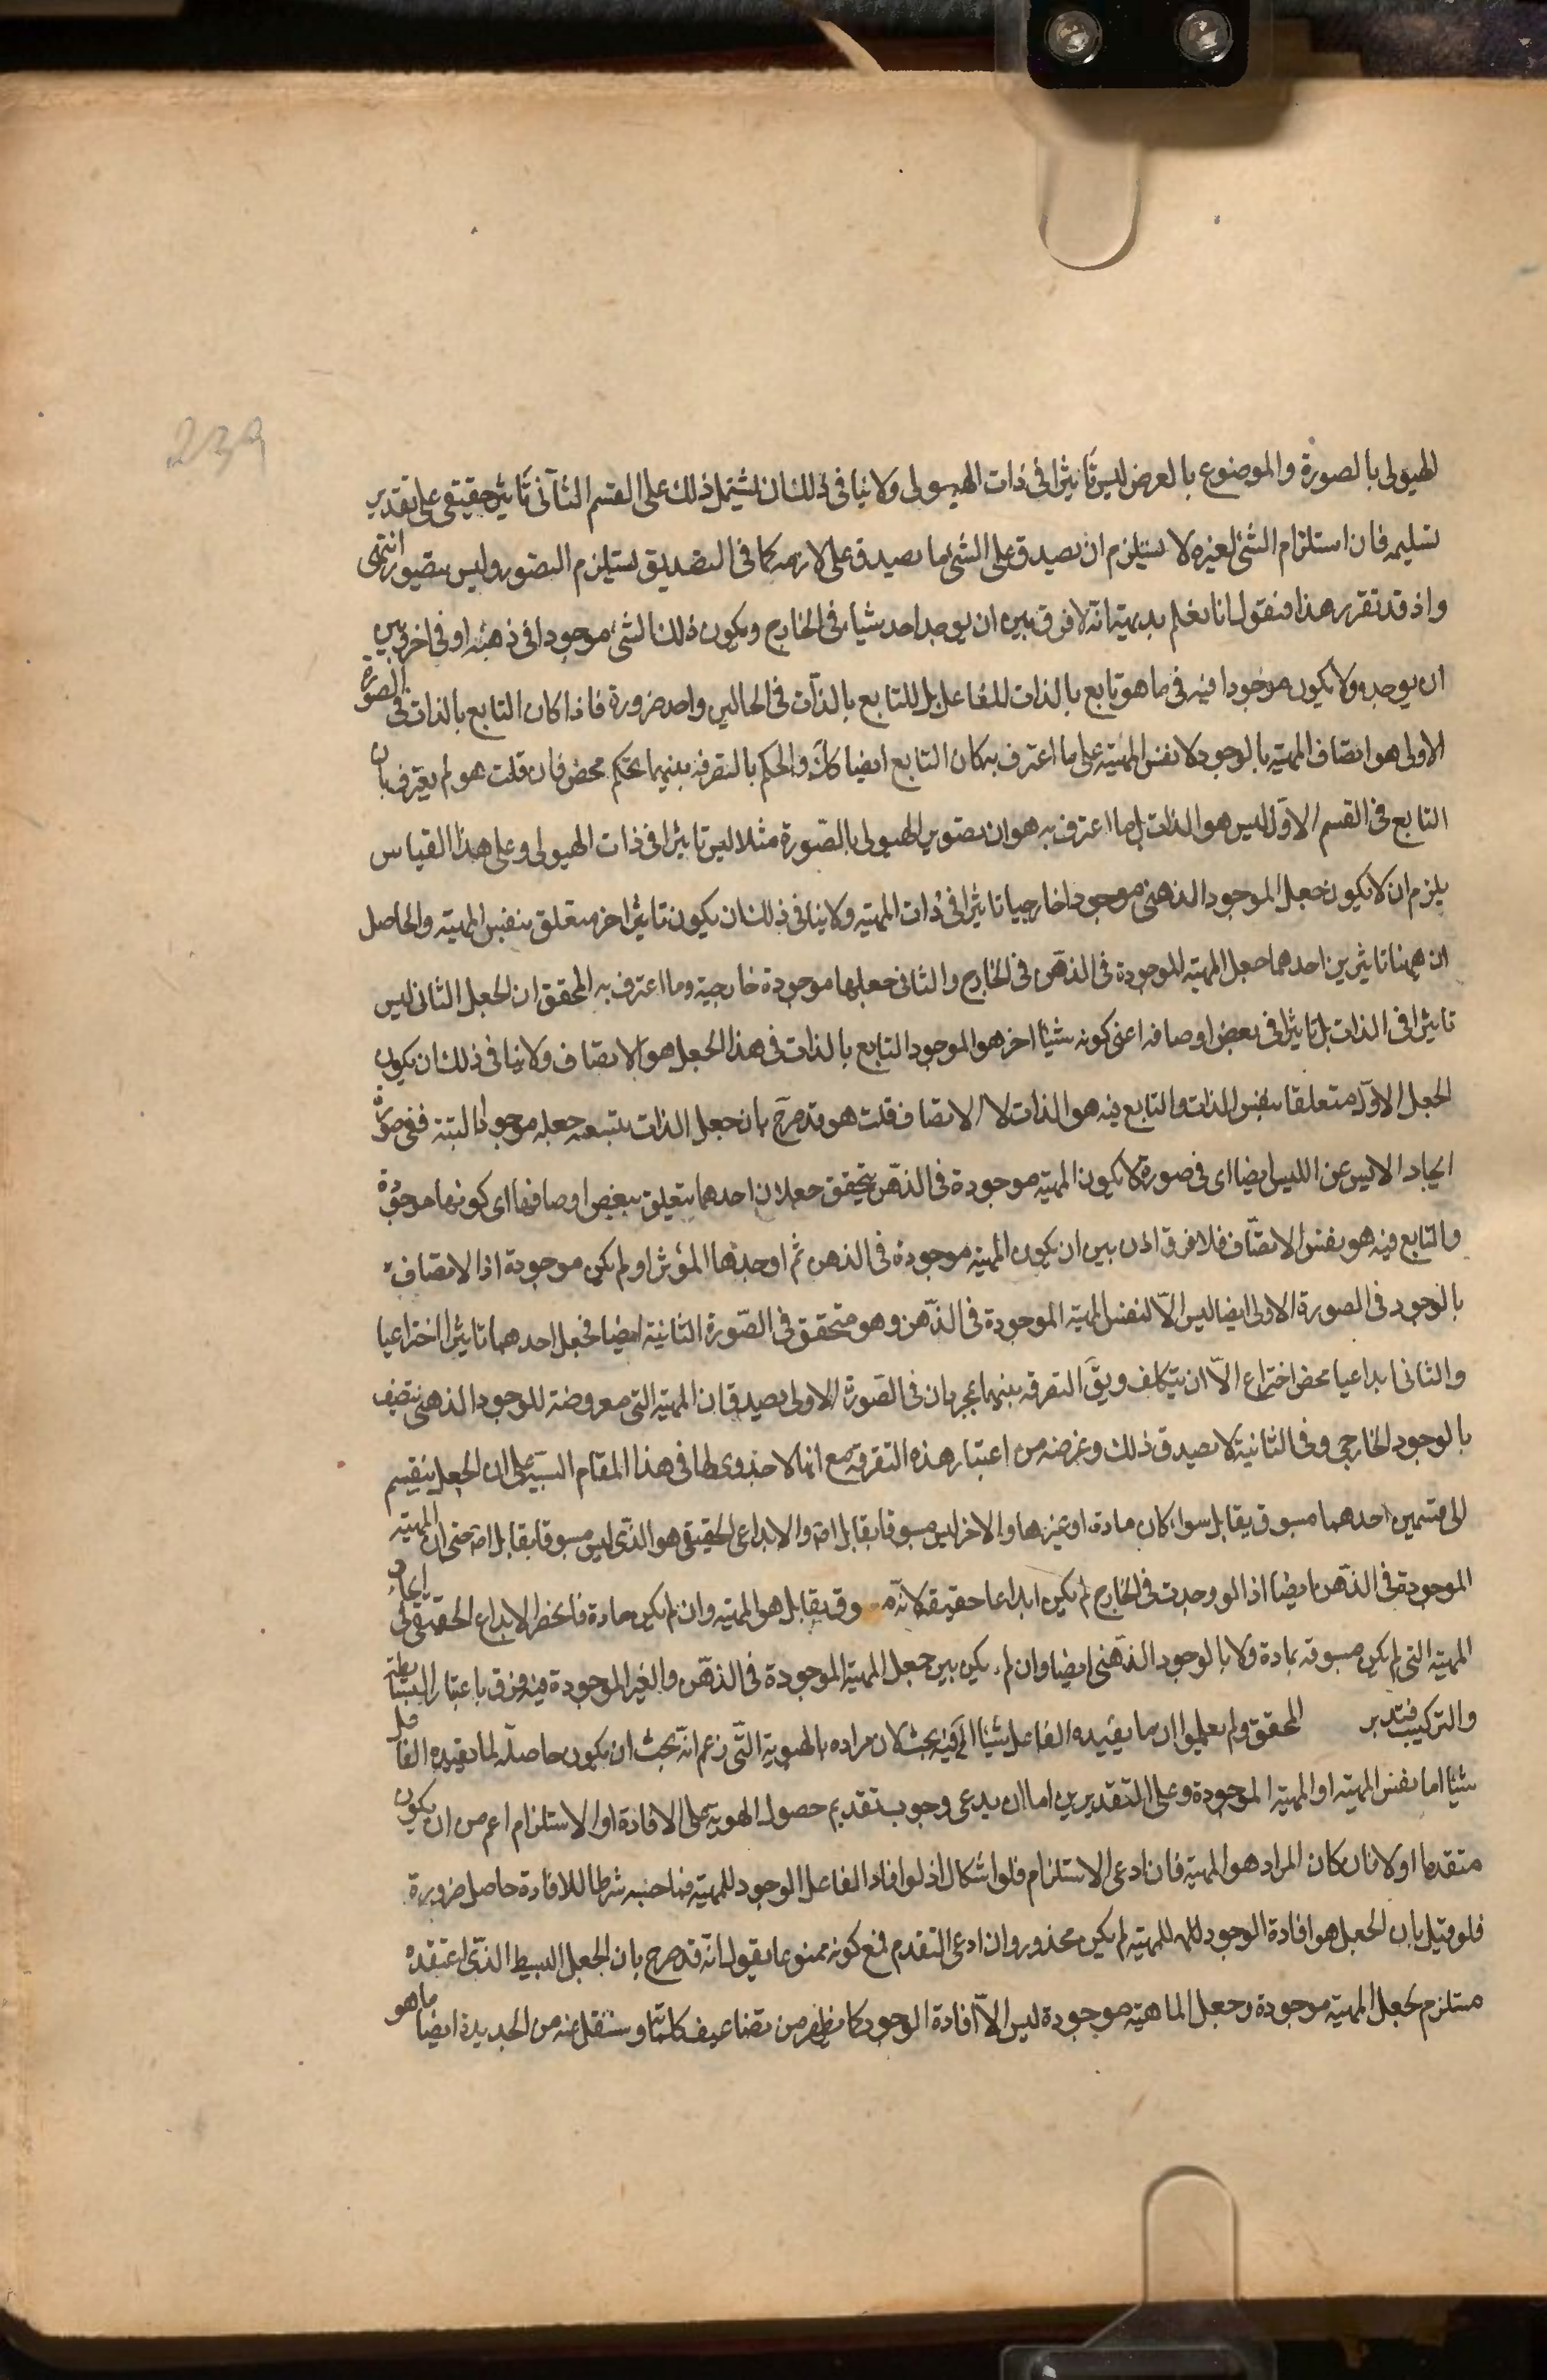 239
الهيولى بالصورة والموضوع بالعرض ليس تأثيرا فى ذات الهيولى ولا ينافى ذلك ان يشتمل ذلك على القسم الثانى تأثير حقيقى على تقدير
تسليمه فان استلزام الشئ لغيره لا يستلزم ان يصدق على الشئ ما يصدق على لازمه كما فى التصديق يستلزم التصور وليس بتصور انتهى
واذ قد تقرر هذا فنقول انا نعلم بديهة انه لا فرق بين ان يوجد احد شيئا فى الخارج ويكون ذلك الشئ موجودا فى ذهنه او فى اخر وبين
ان يوجده ولا يكون موجودا فيه فى ما هو تابع بالذات للفاعل بل للتابع بالذات فى الحالين واحد ضرورة فاذا كان التابع بالذات فى الصورة
الاولى هو اتصاف المهية بالوجود لا نفس المهية على ما اعترف به كان التابع ايضا كك والحكم بالتفرقه بينهما تحكم محض فان قلت هو لم يعترف بان
التابع فى القسم الاول ليس هو الذات بل ما اعترف به هو ان تصوير الهيولى بالصورة مثلا ليس تاثيرا فى ذات الهيولى وعلى هذا القياس
يلزم ان لا يكون جعل الموجود الذهنى موجودا خارجيا تاثيرا فى ذات المهية ولا ينافى ذلك ان يكون تاثيرا اخر متعلق بنفس المهية والحاصل
ان ههنا تاثيرين احدهما جعل المهية الموجودة فى الذهن فى الخارج والثانى جعلها موجودة خارجية وما اعترف به المحقق ان الجعل الثانى ليس
تاثيرا فى الذات بل تاثيرا فى بعض اوصافه اعنى كونه شيئا اخر هو الموجود التابع بالذات فى هذا الجعل هو الاتصاف ولا ينافى ذلك ان يكون
الجعل الاول متعلقا بنفس الذات والتابع فيه هو الذات لا الاتصاف قلت هو قد صرح بان جعل الذات يتبعه جعله موجودا البتة ففى صورة
ايجاد الايس عن الليس ايضا اى فى صورة لا يكون المهية موجودة فى الذهن يتحقق جعلان احدهما يتعلق ببعض اوصافها اى كونها موجودة
والتابع فيه هو نفس الاتصاف فلا فرق اذن بين ان يكون المهية موجودة فى الذهن ثم اوجدها المؤثر او لم يكن موجودة اذ الاتصاف
بالوجود فى الصورة الاولى ايضا ليس الا لنفس المهية الموجودة فى الذهن وهو متحقق فى الصورة الثانية ايضا فجعل احدهما تاثيرا اختراعيا
والثانى ابداعيا محض اختراع الا ان يتكلف ويق التفرقه بينهما بمجرد ان فى الصورة الاولى يصدق ان المهية التى معروضة للوجود الذهنى يتصف
بالوجود الخارجى وفى الثانية لا يصدق ذلك وغرضه من اعتبار هذه التفرقة مع انها لا جدوى لها فى هذا المقام التنبيه على ان الجعل ينقسم
الى قسمين احدهما مسبوق بقابل سواء كان مادة او غيرها والاخر ليس مسبوقا بقابل اصلا والابداعى الحقيقى هو الذى ليس مسبوقا بقابل اصلا حتى ان المهية
الموجودة فى الذهن ايضا اذا لو وجدت فى الخارج لم يكن ابداعا حقيقة لانه وق بقابل هو المهية وان لم يكن مادة فانحصر الابداع الحقيقى فى ايجاد
المهية التى لم يكن مسبوقة بمادة ولا بالوجود الذهنى ايضا وان لم يكن بين جعل المهية الموجودة فى الذهن والغير الموجودة فيه فرق باعتبار البساطة
والتركيب فتدبر المحقق ولم يعلموا ان ما يفيده الفاعل شيئا الخ فيه بحث لان مراده بالهوية التى زعم انه بحث ان يكون حاصلة لما يفيده الفاعل
شيئا اما نفس المهية او المهية الموجودة وعلى التقديرين اما ان يدعى وجوب تقديم حصول الهوية على الافادة او الاستلزام اعم من ان يكون
متقدما او لا فان كان المراد هو المهية فان ادعى الاستلزام فلا اشكال اذ لو افاد الفاعل الوجود للمهية فما حسبه شرطا للافادة حاصل ضرورة
فلو قيل بان الجعل هو افادة الوجود للمهية لم يكن محذور وان ادعى التقدم فمع كونه ممنوعا يقول انه قد صرح بان الجعل البسيط الذى اعتقده
مستلزم لجعل المهية موجودة وجعل الماهية موجودة ليس الا افادة الوجود كما يظهر من تضاعيف كلماته وسننقل عنه من الجديدة ايضا ما هو